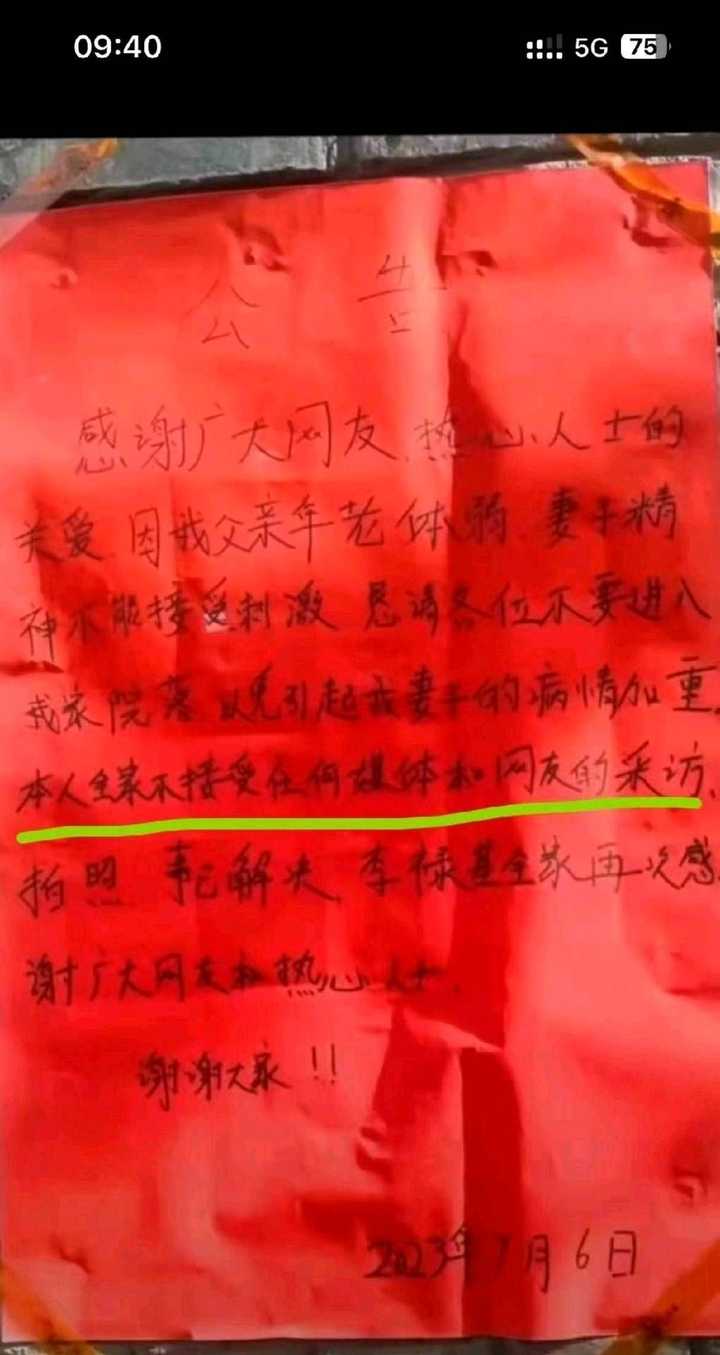 09:40
5G 75
公告
感谢广大网友、热心人士的
关爱 因我父亲年老体弱 妻子精
神不能接受刺激 恳请各位不要进入
我家院落 以免引起我妻子的病情加重,
本人全家不接受任何媒体和网友的采访、
拍照 事已解决, 李禄基全家再次感
谢广大网友和热心人士.
谢谢大家!!
2023年1月6日